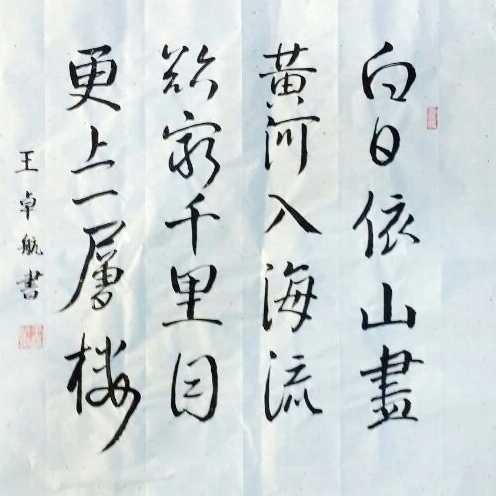 白日依山盡
黃河入海流
欲窮千里目
更上一層樓
王卓航書